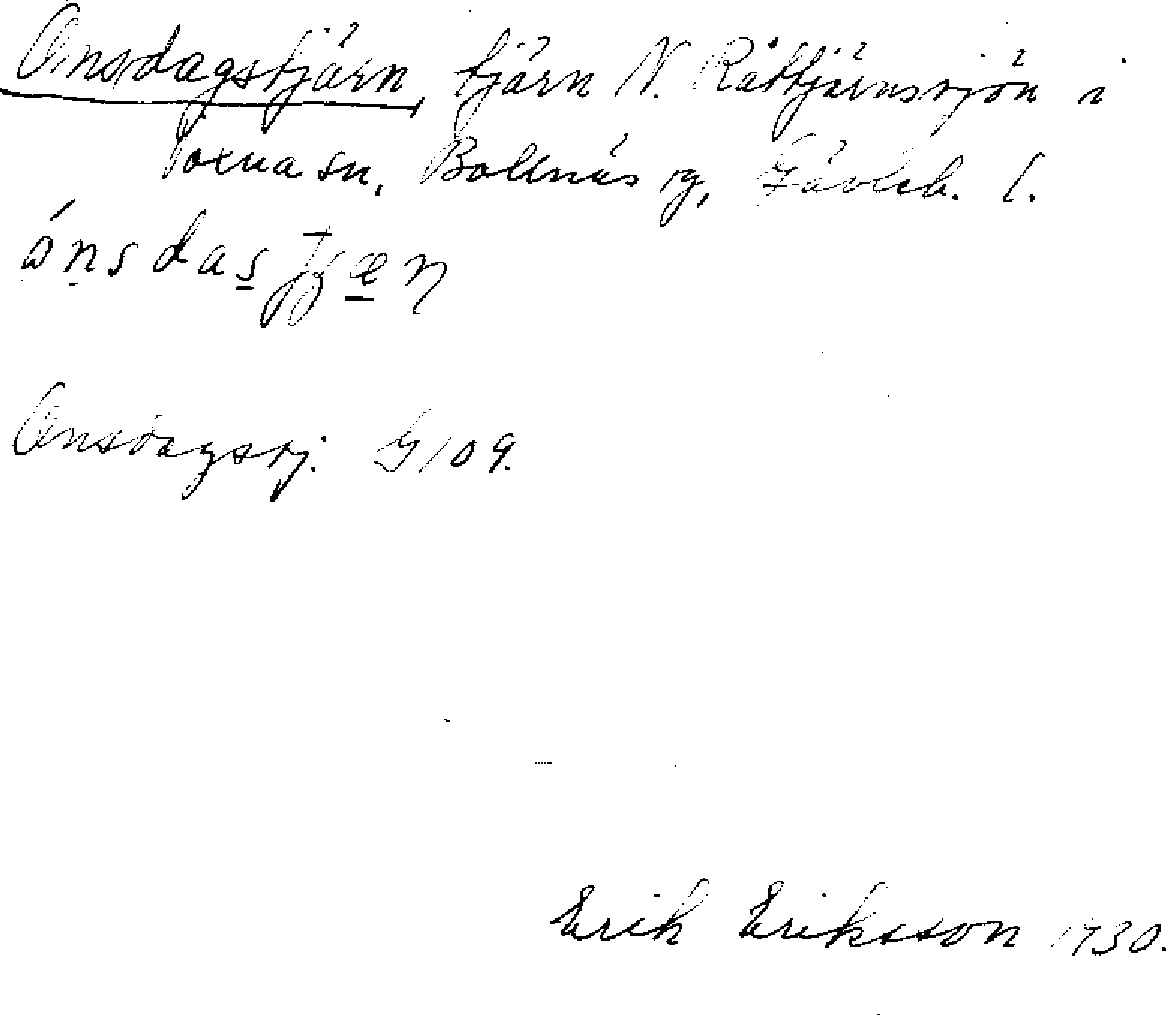 Onsdagstjärn, tjärn N. Råttjärnssjön i
Voxna sn, Bollnäs sg, Gävleb. l.
ónsdas
Onsdagssj. G 109.
Erik Eriksson 1930.